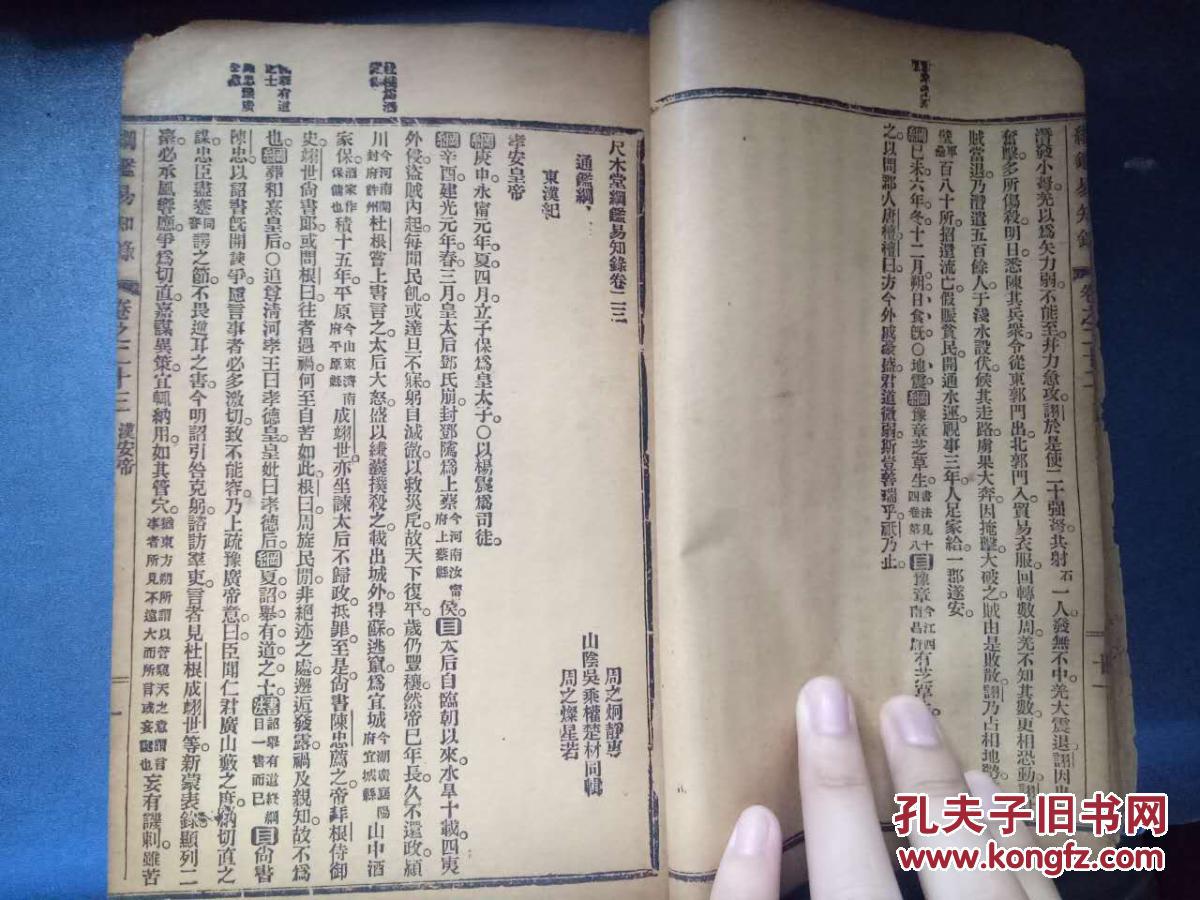 潛發小弩羌以爲矢力弱不能至幷力急攻詡於是使二十强弩共射一人發無不中羌大震退詡因出
奮擊多所傷殺明日悉陳其兵衆令從東郭門出北郭門入貿易衣服回轉數周羌不知其數更相恐動詡
賊當退乃潛遣五百餘人于淺水設伏候其走路虜果大奔因掩擊大破之賊由是敗散詡乃占相地勢
百八十所招還流亡假賑貧民開通水運視事三年人足家給一郡遂安
綱己未六年冬十二月朔日食旣〇地震綱豫章芝草生書法見十四卷第八目豫章今江西南昌府有芝草
之以問郡人唐檀檀曰方今外戚豪盛君道微弱斯豈嘉瑞乎祗乃止
尺木堂綱鑑易知錄卷二三
通鑑綱
周之炯靜專
山陰吳乘權楚材同輯
周之燦星若
東漢紀
孝安皇帝
綱庚申永甯元年夏四月立子保爲皇太子〇以楊震爲司徒
綱辛酉建光元年春三月皇太后鄧氏崩封鄧騭爲上蔡今河南汝甯府上蔡縣侯目太后自臨朝以來水旱十載四夷
外侵盜賊內起每聞民飢或達旦不寐躬自減徹以救災戹故天下復平歲仍豐穰然帝已年長久不還政潁
川今河南開封府許州杜根嘗上書言之太后大怒盛以縑囊撲殺之載出城外得蘇逃竄爲宜城今湖廣襄陽府宜城縣山中酒
家保酒家作保傭也積十五年平原今山東濟南府平原縣成翊世亦坐諫太后不歸政抵罪至是尙書陳忠薦之帝拜根侍御
史翊世尙書郞或問根曰往者遇禍何至自苦如此根曰周旋民閒非絕迹之處邂逅發露禍及親知故不爲
也綱葬和熹皇后〇追尊淸河孝王曰孝德皇皇妣曰孝德后綱夏詔舉有道之士書法詔舉有道終綱目一書而已目尙書
陳忠以詔書旣開諫爭慮言事者必多激切致不能容乃上疏豫廣帝意曰臣聞仁君廣山藪之度納切直之
謀忠臣盡蹇同謇諤之節不畏逆耳之害今明詔引咎克躬諮訪羣吏言者見杜根成翊世等新蒙表錄顯列二
臺必承風響應爭爲切直嘉謀異策宜輒納用如其管穴猶東方朔所謂以管窺天之意謂言事者所見不遠大而所言或妄也妄有譏刺雖苦
綱鑑易知錄 卷之二十三 漢安帝 一
孔夫子旧书网
www.kongfz.com